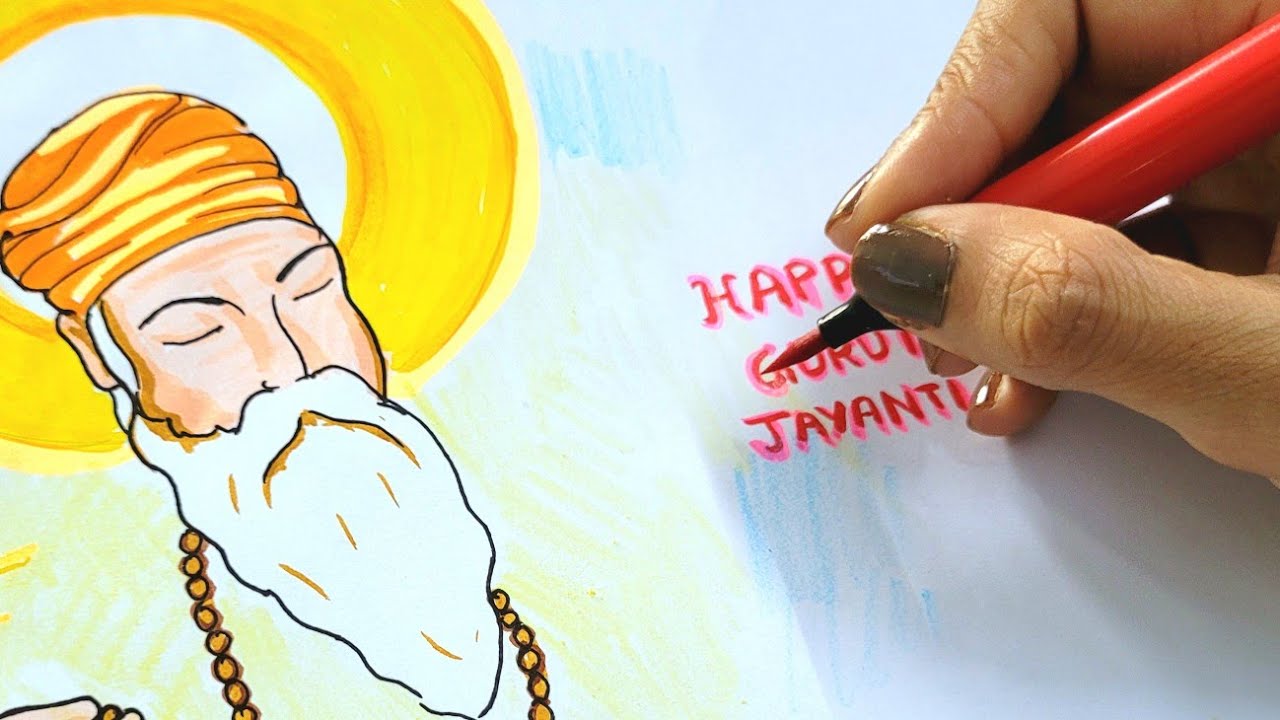 HAPP
GURU
JAYANTI